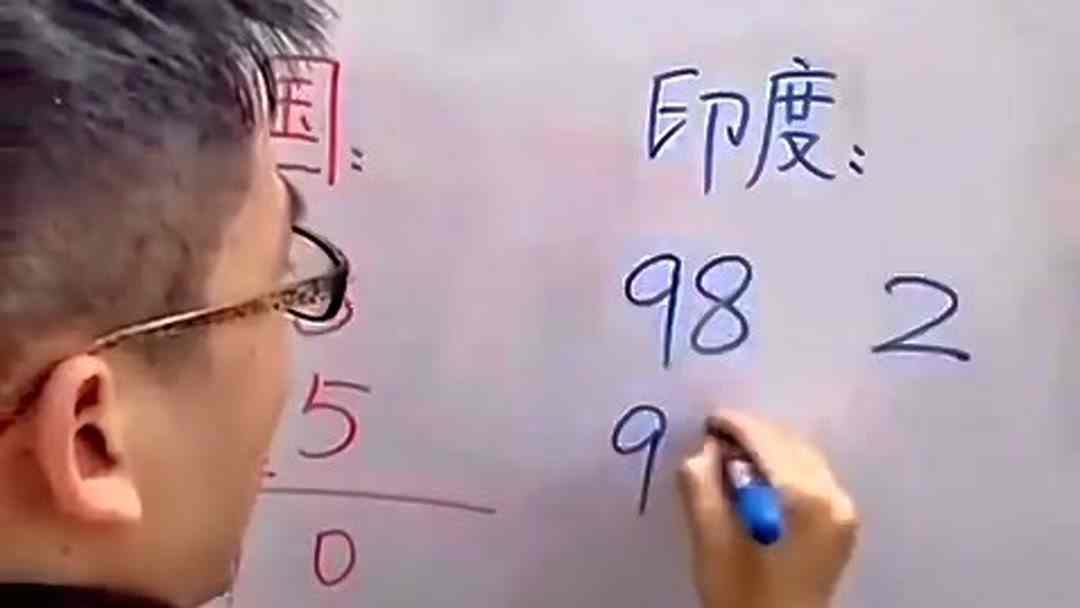 国: 印度:
8 98 2
5 9
0